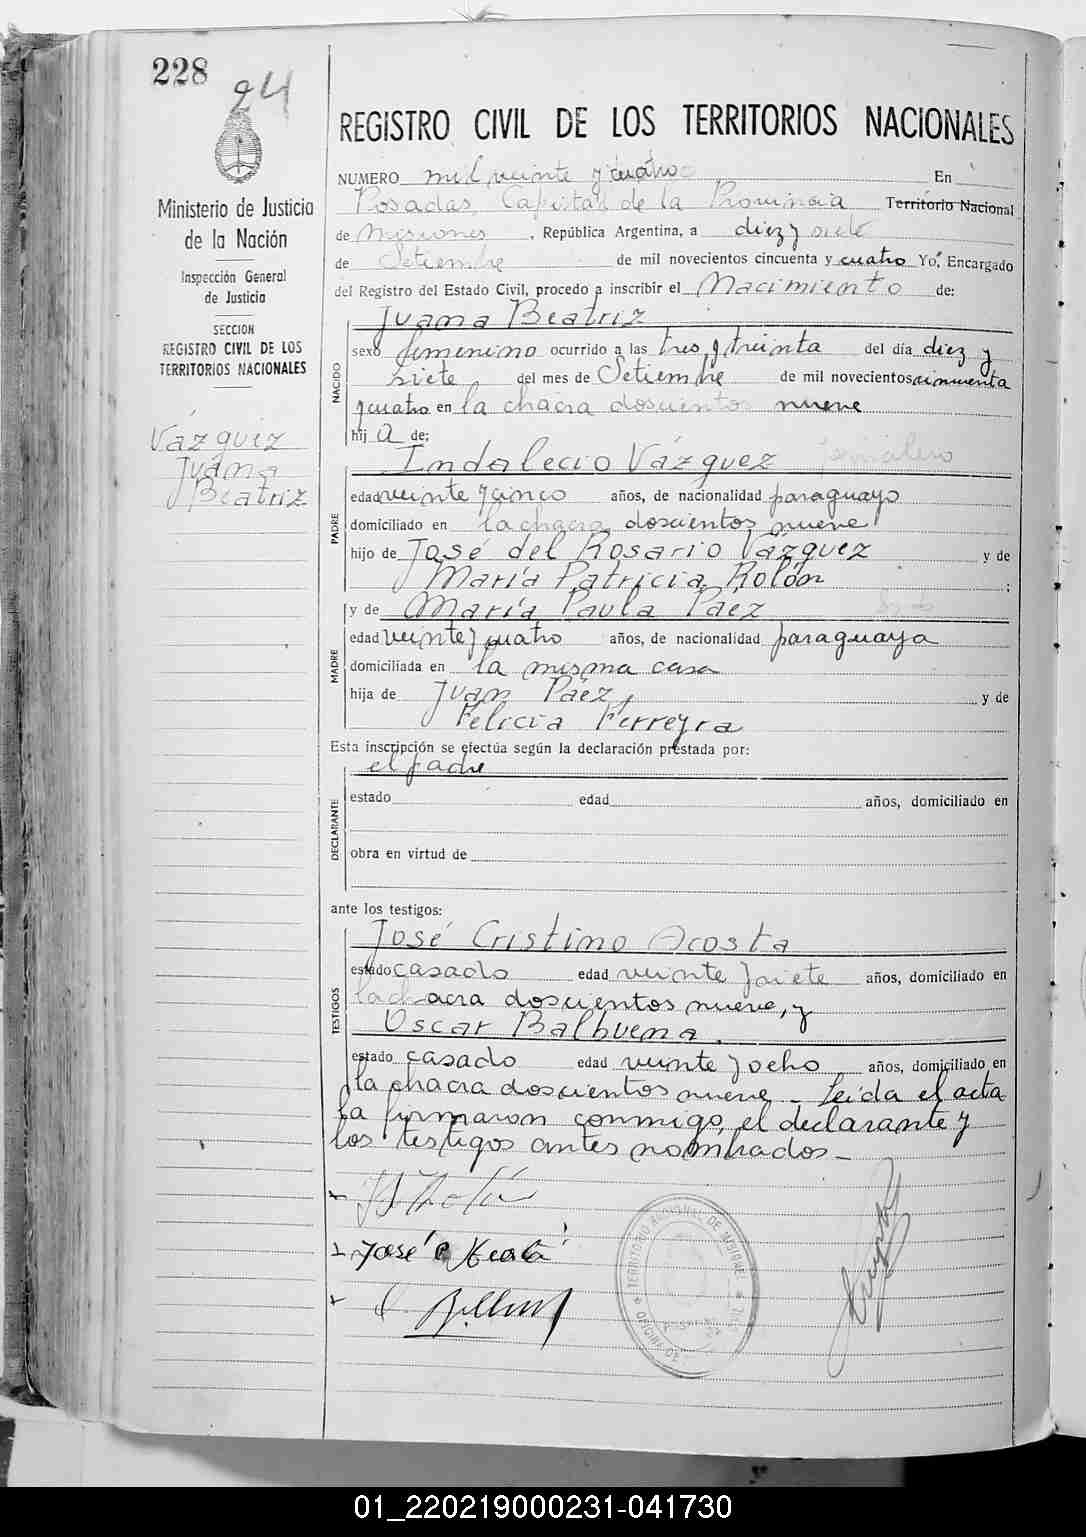 228
24
REGISTRO CIVIL DE LOS TERRITORIOS NACIONALES
Ministerio de Justicia
de la Nación
Inspección General
de Justicia
SECCION
REGISTRO CIVIL DE LOS
TERRITORIOS NACIONALES
Vázquez
Juana
Beatriz
NUMERO mil veinte y cuatro En
Posadas, Capital de la Provincia Territorio Nacional
de Misiones, República Argentina, a diez y siete
de Setiembre de mil novecientos cincuenta y cuatro Yo, Encargado
del Registro del Estado Civil, procedo a inscribir el Nacimiento de:
NACIDO
Juana Beatriz
sexo femenino ocurrido a las tres y treinta del día diez y
siete del mes de Setiembre de mil novecientos cincuenta
y cuatro en la chacra doscientos nueve
hij a de:
PADRE
Indalecio Vázquez jornalero
edad veinte y cinco años, de nacionalidad paraguayo
domiciliado en la chacra doscientos nueve
hijo de José del Rosario Vázquez y de
María Patricia Rolón ;
MADRE
y de María Paula Páez
edad veinte y cuatro años, de nacionalidad paraguaya
domiciliada en la misma casa
hija de Juan Páez, y de
Felicia Ferreyra
Esta inscripción se efectúa según la declaración prestada por:
DECLARANTE
el padre
estado edad años, domiciliado en
obra en virtud de
ante los testigos:
TESTIGOS
José Cristino Acosta
estado casado edad veinte y siete años, domiciliado en
la chacra doscientos nueve, y
Oscar Balbuena.
estado casado edad veinte y ocho años, domiciliado en
la chacra doscientos nueve - Leída el acta
la firmaron conmigo, el declarante y
los testigos antes nombrados -
José C
TERRITORIO NACIONAL DE MISIONES
01_220219000231-041730